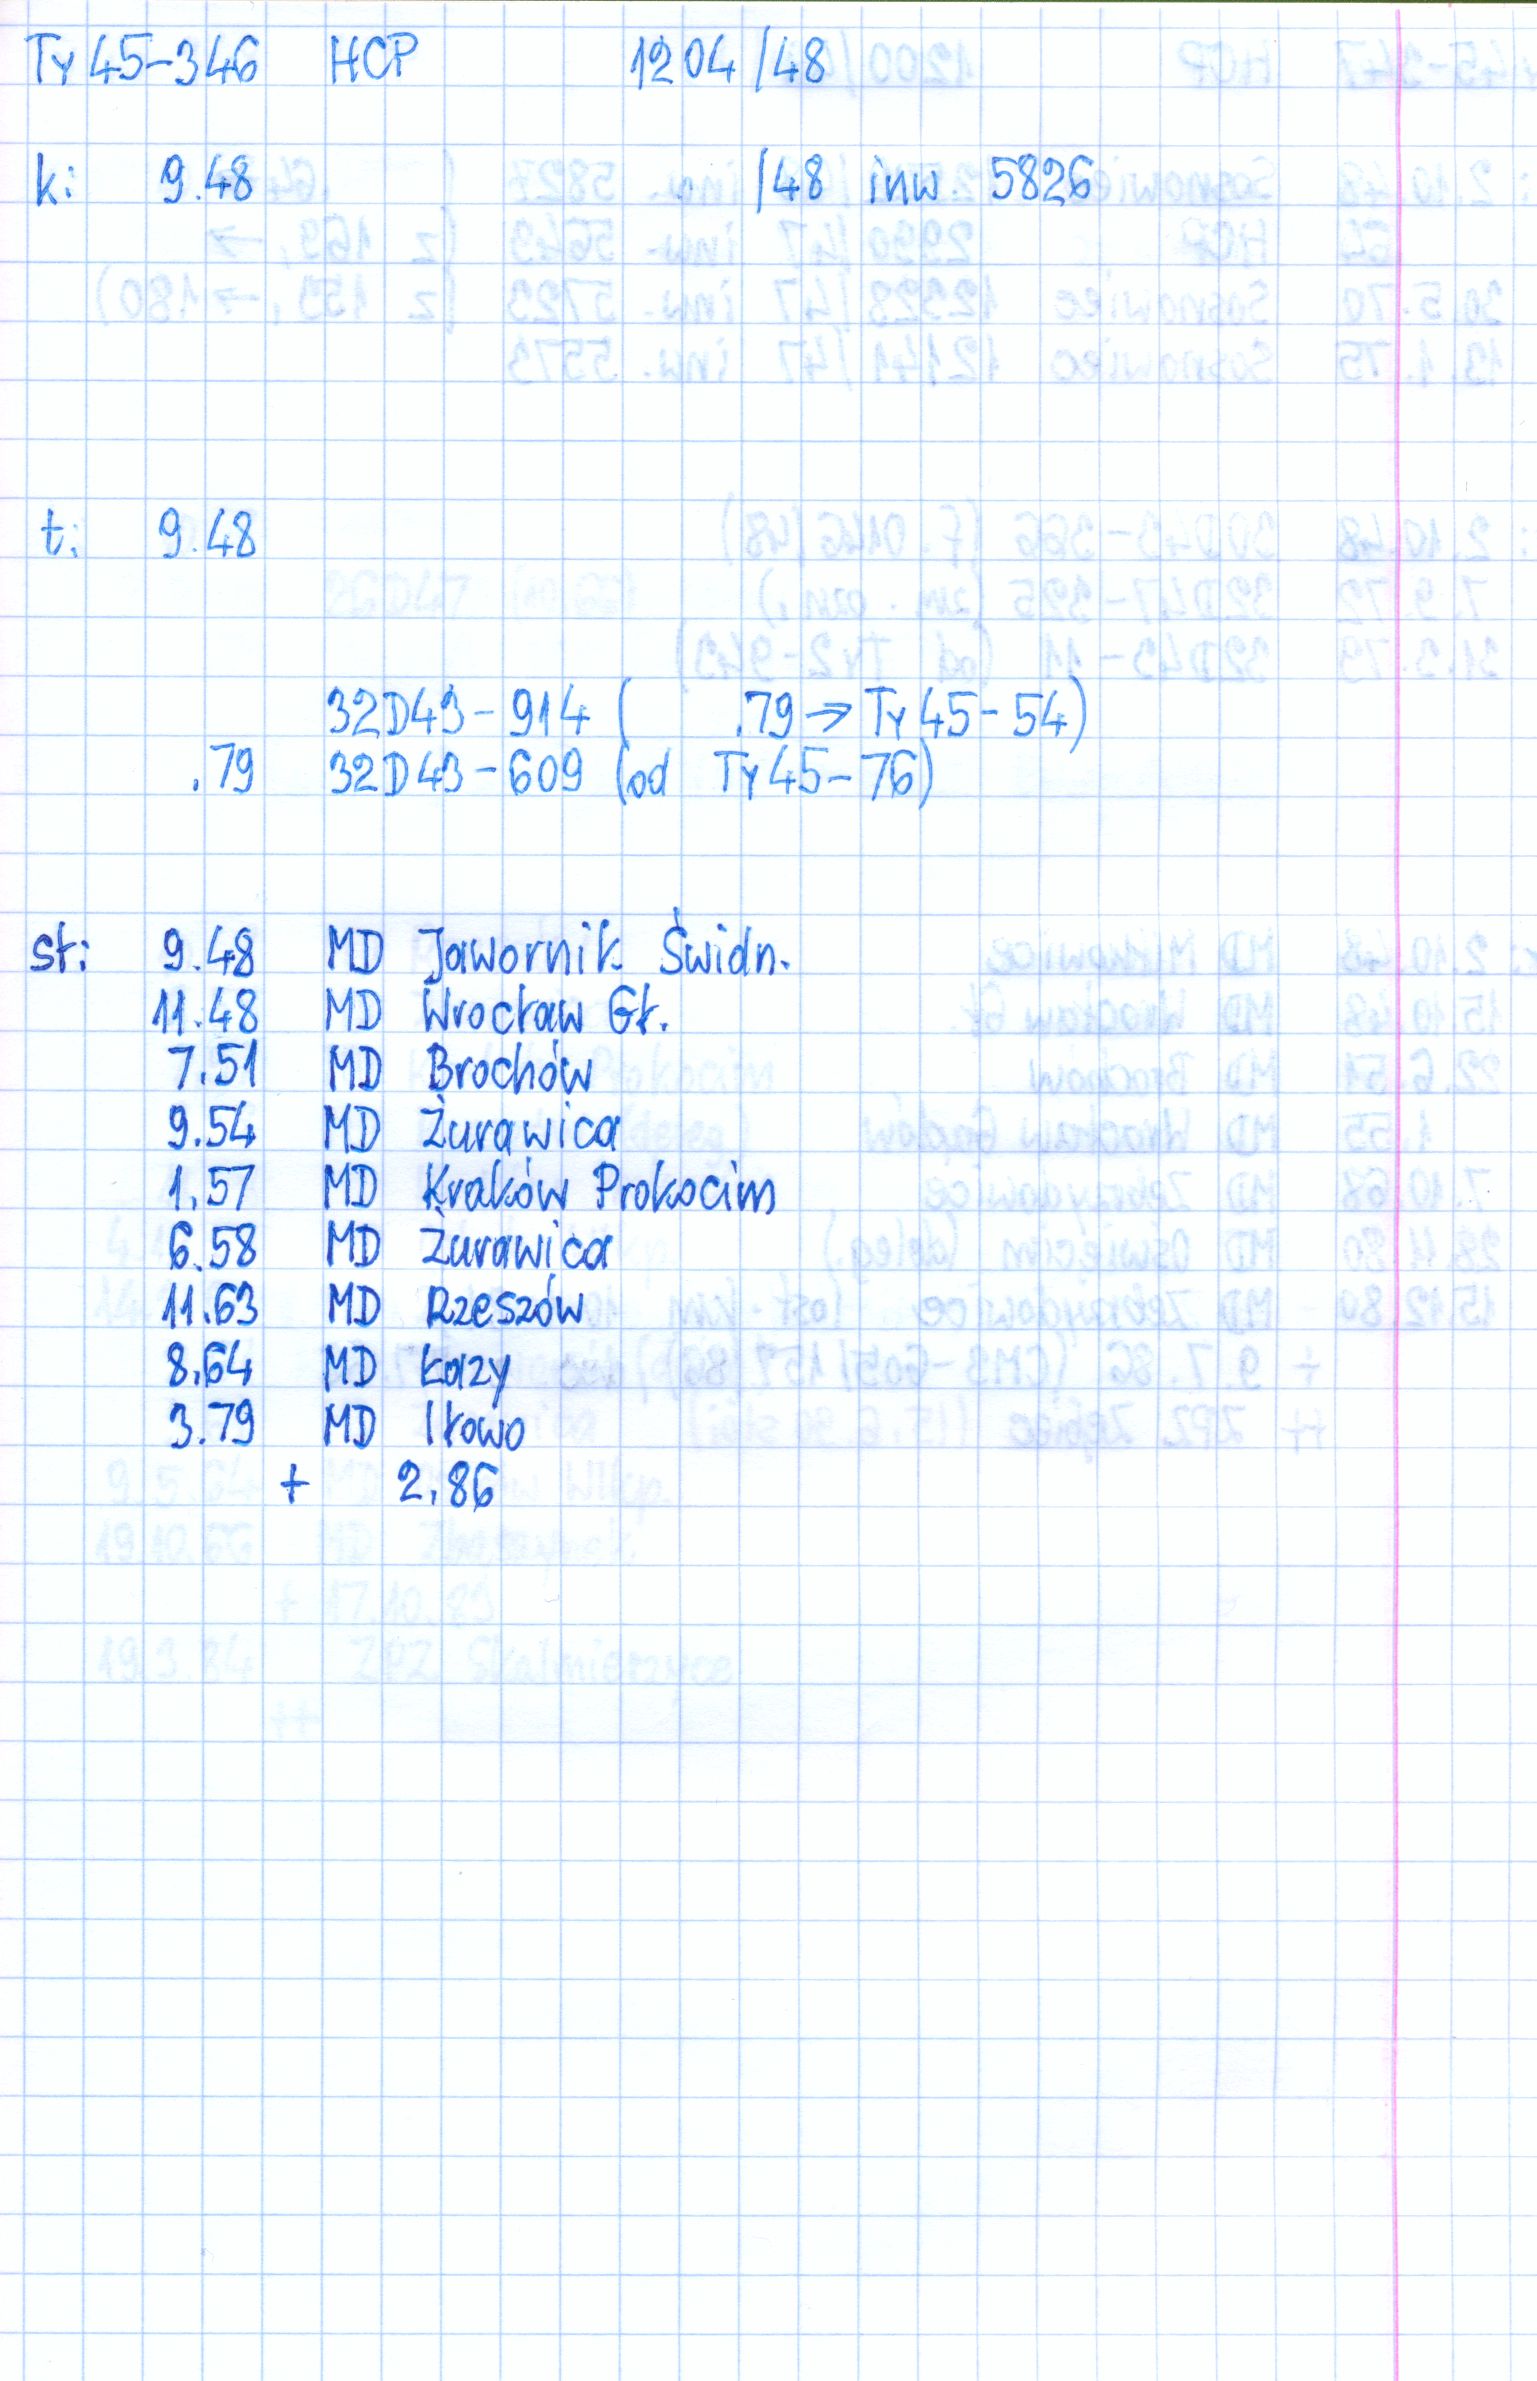 Ty45-346 HCP 1204/48
k: 9.48 /48 inw. 5826
t: 9.48
32D43-914 ( .79 → Ty45-54)
.79 32D43-609 (od Ty45-76)
st: 9.48 MD Jawornik Świdn.
11.48 MD Wrocław Gł.
7.51 MD Brochów
9.54 MD Żurawica
1.57 MD Kraków Prokocim
6.58 MD Żurawica
11.63 MD Rzeszów
8.64 MD Łazy
3.79 MD Iłowo
+ 2.86